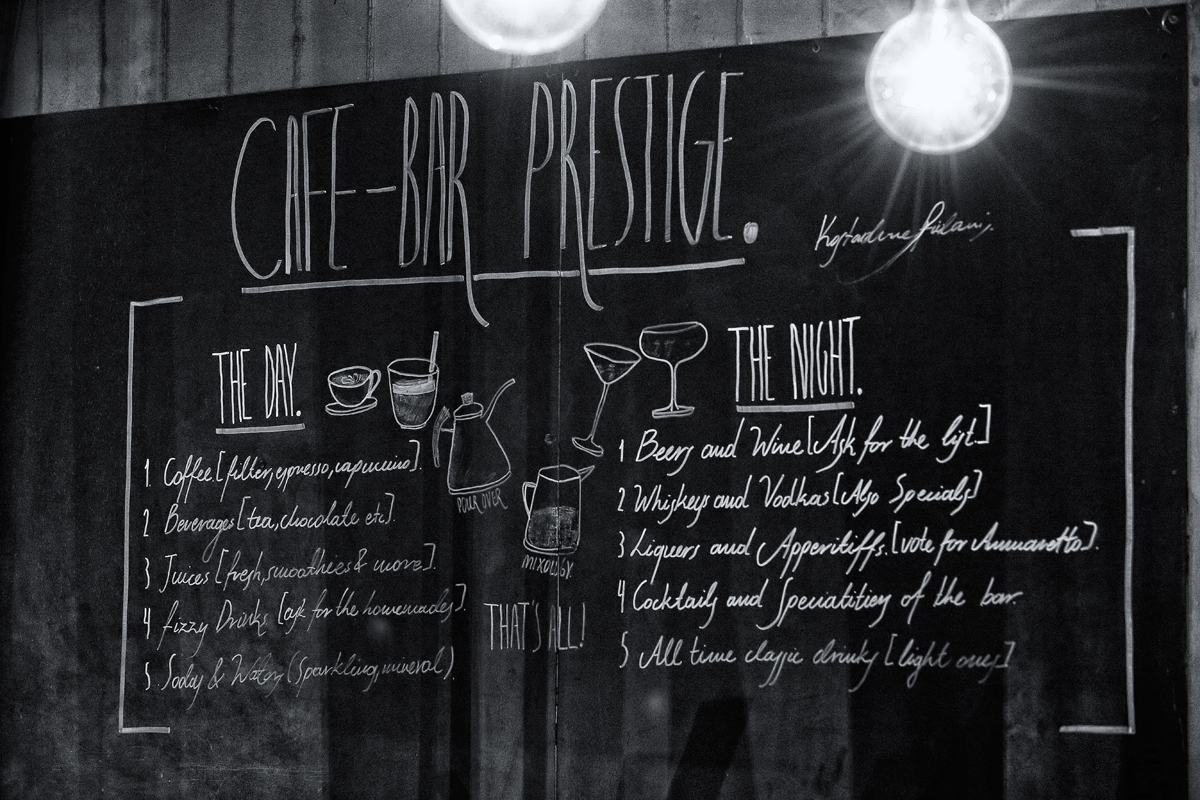 CAFE-BAR PRESTIGE.
THE DAY.
1 Coffee [filter, espresso, capuccino].
2 Beverages [tea, chocolate etc].
3 Juices [fresh, smoothies & more].
4 Fizzy Drinks [ask for the homemades].
5 Sodas & Waters (Sparkling, mineral)
POUR OVER
MIXOLOGY.
THAT'S ALL!
THE NIGHT.
1 Beers and Wine [Ask for the list]
2 Whiskeys and Vodkas [Also Specials]
3 Liquers and Apperitiffs. [vote for Ammaretto].
4 Cocktails and Speciatities of the bar.
5 All time classic drinks [light ones]